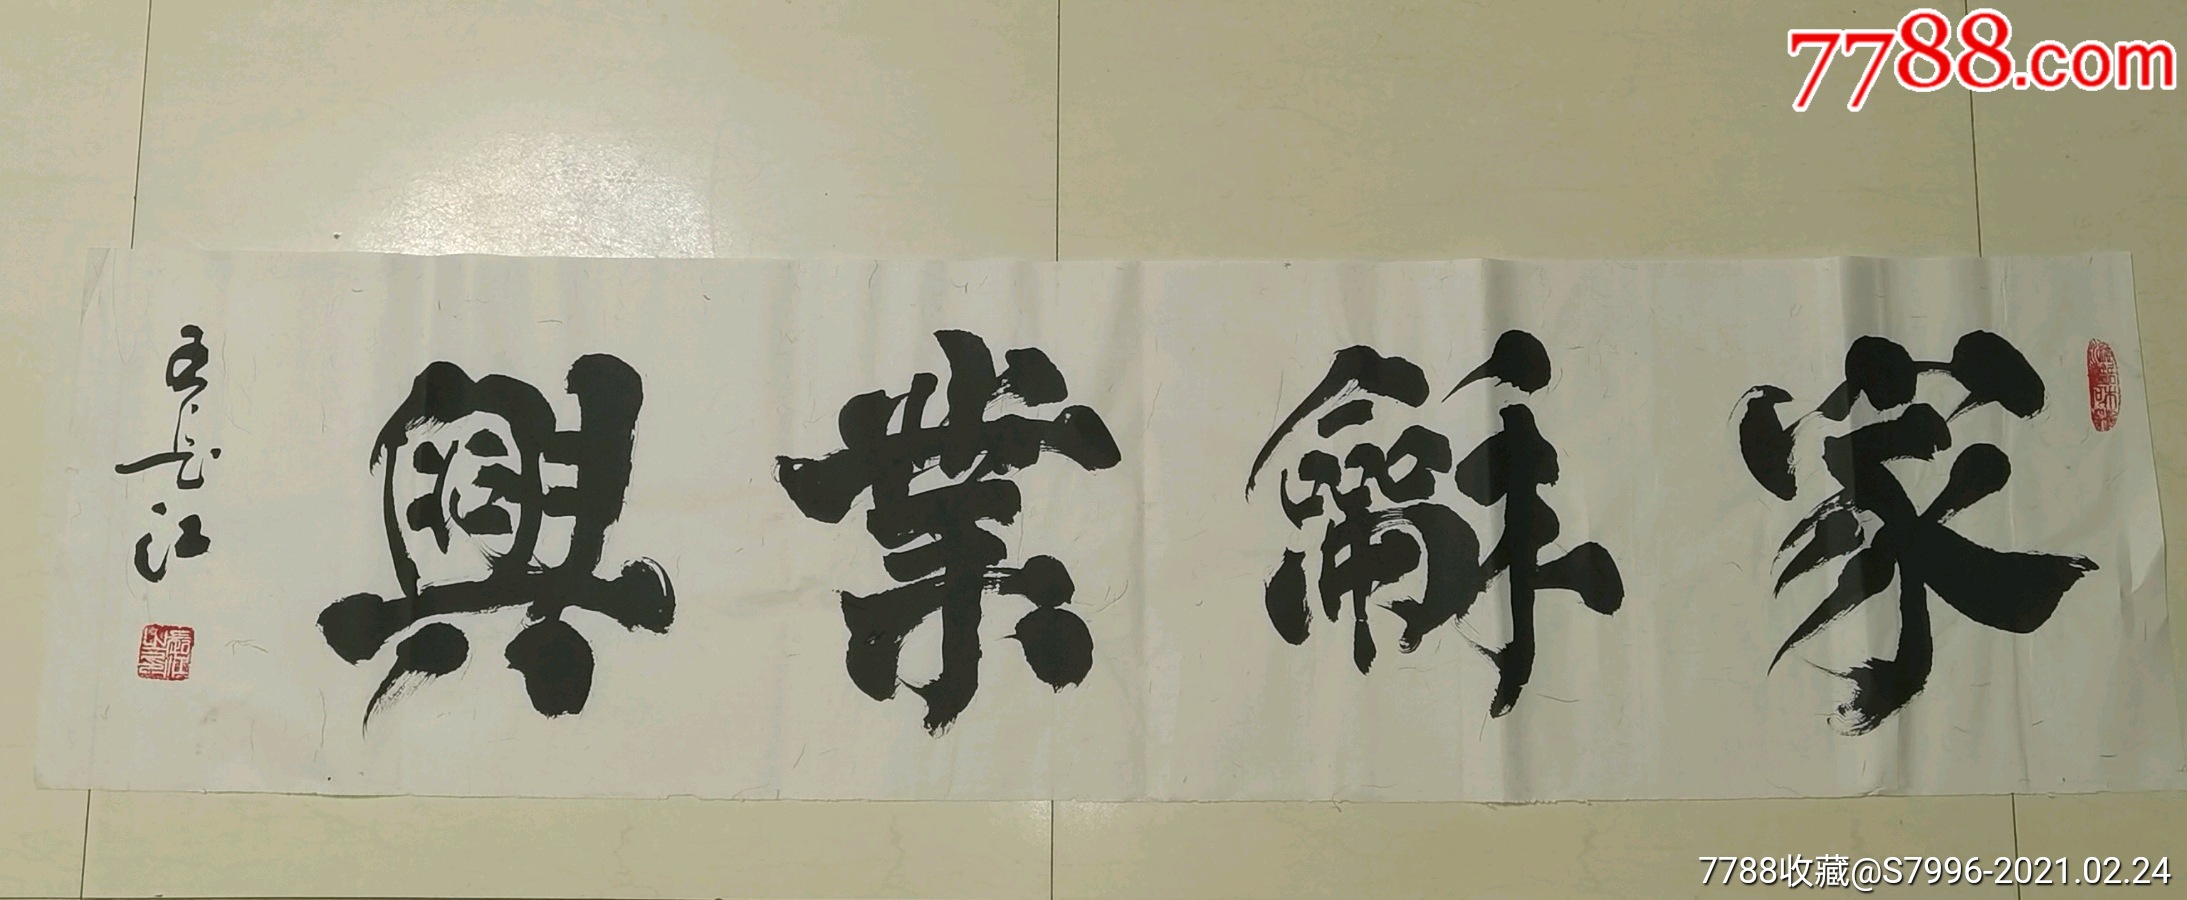 7788.com
家龢業興
7788收藏@S7996-2021.02.24